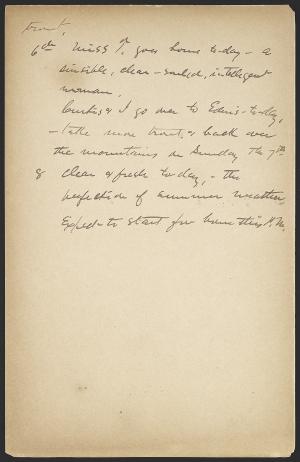 trout,
6th Miss P. goes home to-day - a
sensible, clear-souled, intelligent
woman.
Curtis & I go over to Edwin's to-day,
- take more trout, & back over
the mountains on Sunday the 7th
8 clear & fresh to day, - the
perfection of summer weather.
Expect to start for home this P.M.